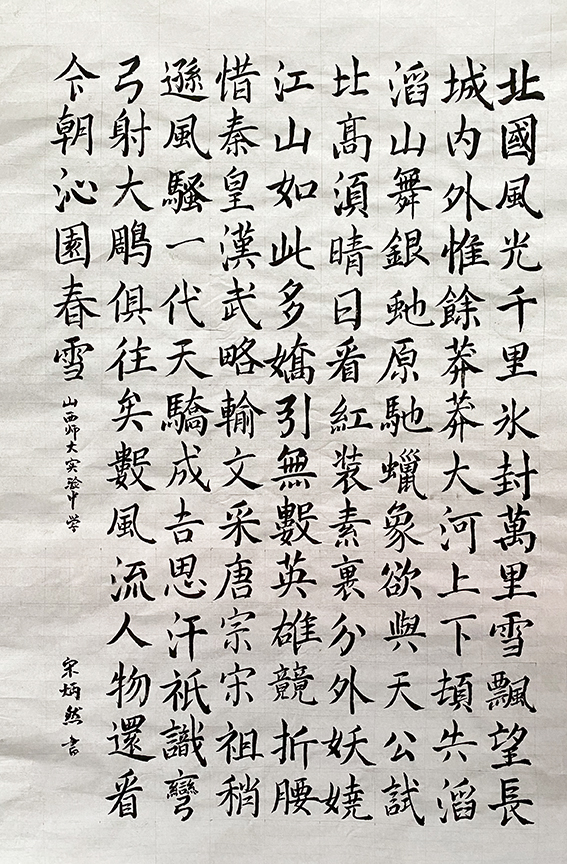 北國風光千里氷封萬里雪飄望長
城内外惟餘莽莽大河上下頓失滔
滔山舞銀虵原馳蠟象欲與天公試
比高須晴日看紅装素裹分外妖嬈
江山如此多嬌引無數英雄競折腰
惜秦皇漢武略輸文采唐宗宋祖稍
遜風騷一代天驕成吉思汗祇識彎
弓射大鵰俱往矣數風流人物還看
今朝沁園春雪 山西师大实验中学 宋炳然書